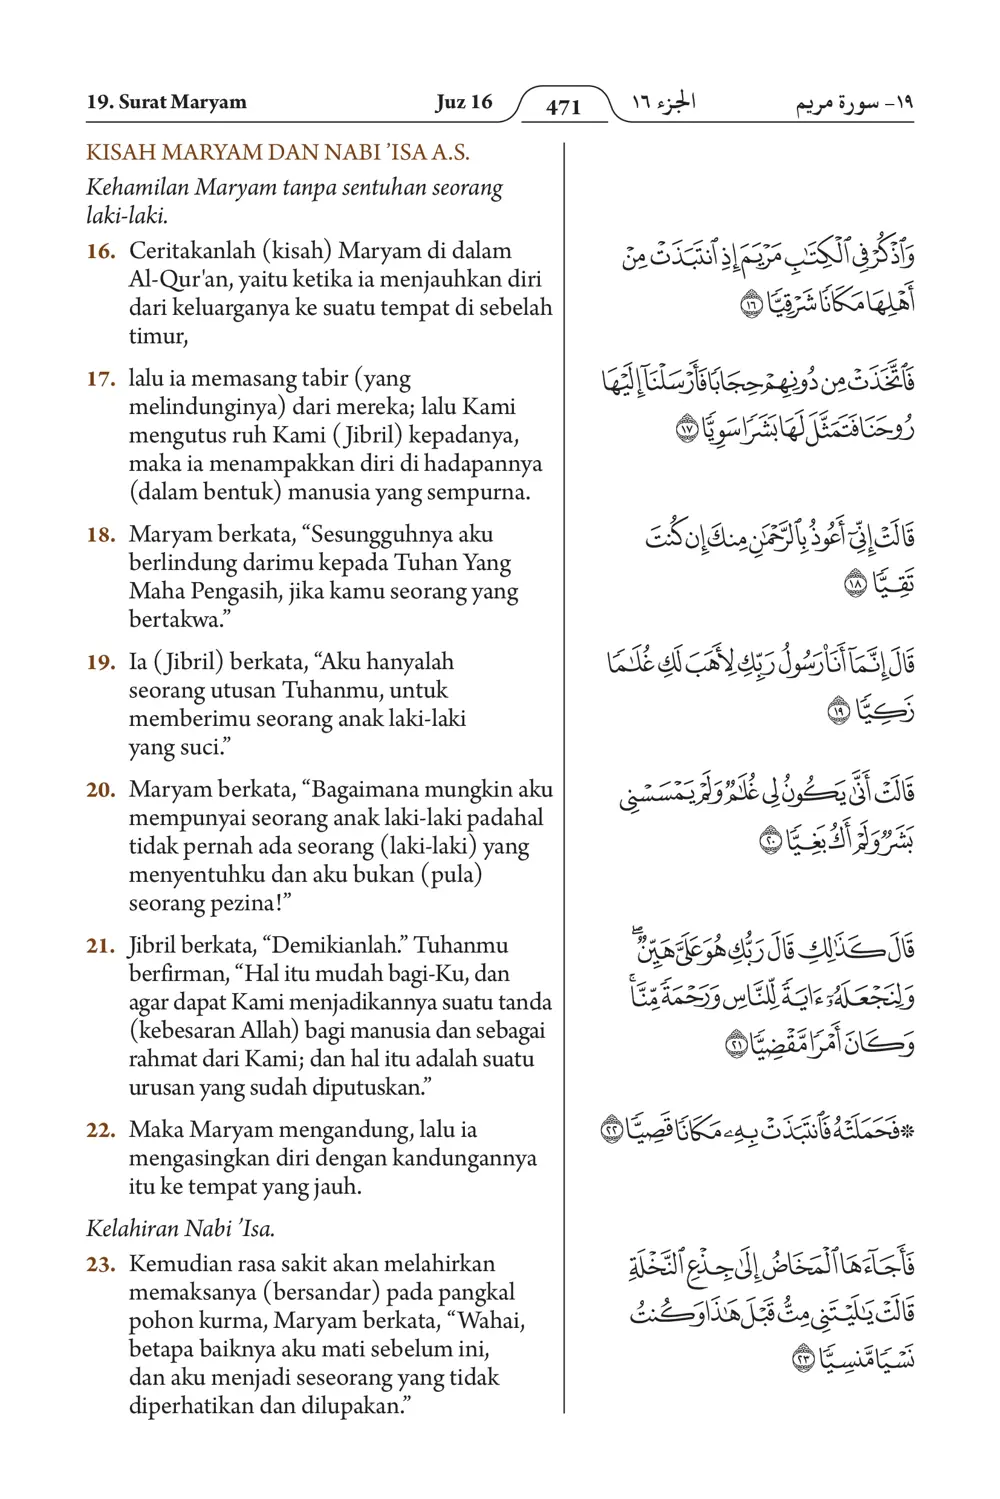 19. Surat Maryam Juz 16 471 الجزء ١٦ ١٩- سورة مريم
KISAH MARYAM DAN NABI ’ISA A.S.
Kehamilan Maryam tanpa sentuhan seorang
laki-laki.
16. Ceritakanlah (kisah) Maryam di dalam
Al-Qur'an, yaitu ketika ia menjauhkan diri
dari keluarganya ke suatu tempat di sebelah
timur,
17. lalu ia memasang tabir (yang
melindunginya) dari mereka; lalu Kami
mengutus ruh Kami (Jibril) kepadanya,
maka ia menampakkan diri di hadapannya
(dalam bentuk) manusia yang sempurna.
18. Maryam berkata, “Sesungguhnya aku
berlindung darimu kepada Tuhan Yang
Maha Pengasih, jika kamu seorang yang
bertakwa.”
19. Ia (Jibril) berkata, “Aku hanyalah
seorang utusan Tuhanmu, untuk
memberimu seorang anak laki-laki
yang suci.”
20. Maryam berkata, “Bagaimana mungkin aku
mempunyai seorang anak laki-laki padahal
tidak pernah ada seorang (laki-laki) yang
menyentuhku dan aku bukan (pula)
seorang pezina!”
21. Jibril berkata, “Demikianlah.” Tuhanmu
berfirman, “Hal itu mudah bagi-Ku, dan
agar dapat Kami menjadikannya suatu tanda
(kebesaran Allah) bagi manusia dan sebagai
rahmat dari Kami; dan hal itu adalah suatu
urusan yang sudah diputuskan.”
22. Maka Maryam mengandung, lalu ia
mengasingkan diri dengan kandungannya
itu ke tempat yang jauh.
Kelahiran Nabi ’Isa.
23. Kemudian rasa sakit akan melahirkan
memaksanya (bersandar) pada pangkal
pohon kurma, Maryam berkata, “Wahai,
betapa baiknya aku mati sebelum ini,
dan aku menjadi seseorang yang tidak
diperhatikan dan dilupakan.”
وَٱذْكُرْ فِى ٱلْكِتَـٰبِ مَرْيَمَ إِذِ ٱنتَبَذَتْ مِنْ
أَهْلِهَا مَكَانًا شَرْقِيًّا ١٦
فَٱتَّخَذَتْ مِن دُونِهِمْ حِجَابًا فَأَرْسَلْنَآ إِلَيْهَا
رُوحَنَا فَتَمَثَّلَ لَهَا بَشَرًا سَوِيًّا ١٧
قَالَتْ إِنِّىٓ أَعُوذُ بِٱلرَّحْمَـٰنِ مِنكَ إِن كُنتَ
تَقِيًّا ١٨
قَالَ إِنَّمَآ أَنَا۠ رَسُولُ رَبِّكِ لِأَهَبَ لَكِ غُلَـٰمًا
زَكِيًّا ١٩
قَالَتْ أَنَّىٰ يَكُونُ لِى غُلَـٰمٌ وَلَمْ يَمْسَسْنِى
بَشَرٌ وَلَمْ أَكُ بَغِيًّا ٢٠
قَالَ كَذَٰلِكِ قَالَ رَبُّكِ هُوَ عَلَىَّ هَيِّنٌ ۖ
وَلِنَجْعَلَهُۥٓ ءَايَةً لِّلنَّاسِ وَرَحْمَةً مِّنَّا ۚ
وَكَانَ أَمْرًا مَّقْضِيًّا ٢١
* فَحَمَلَتْهُ فَٱنتَبَذَتْ بِهِۦ مَكَانًا قَصِيًّا ٢٢
فَأَجَآءَهَا ٱلْمَخَاضُ إِلَىٰ جِذْعِ ٱلنَّخْلَةِ
قَالَتْ يَـٰلَيْتَنِى مِتُّ قَبْلَ هَـٰذَا وَكُنتُ
نَسْيًا مَّنسِيًّا ٢٣